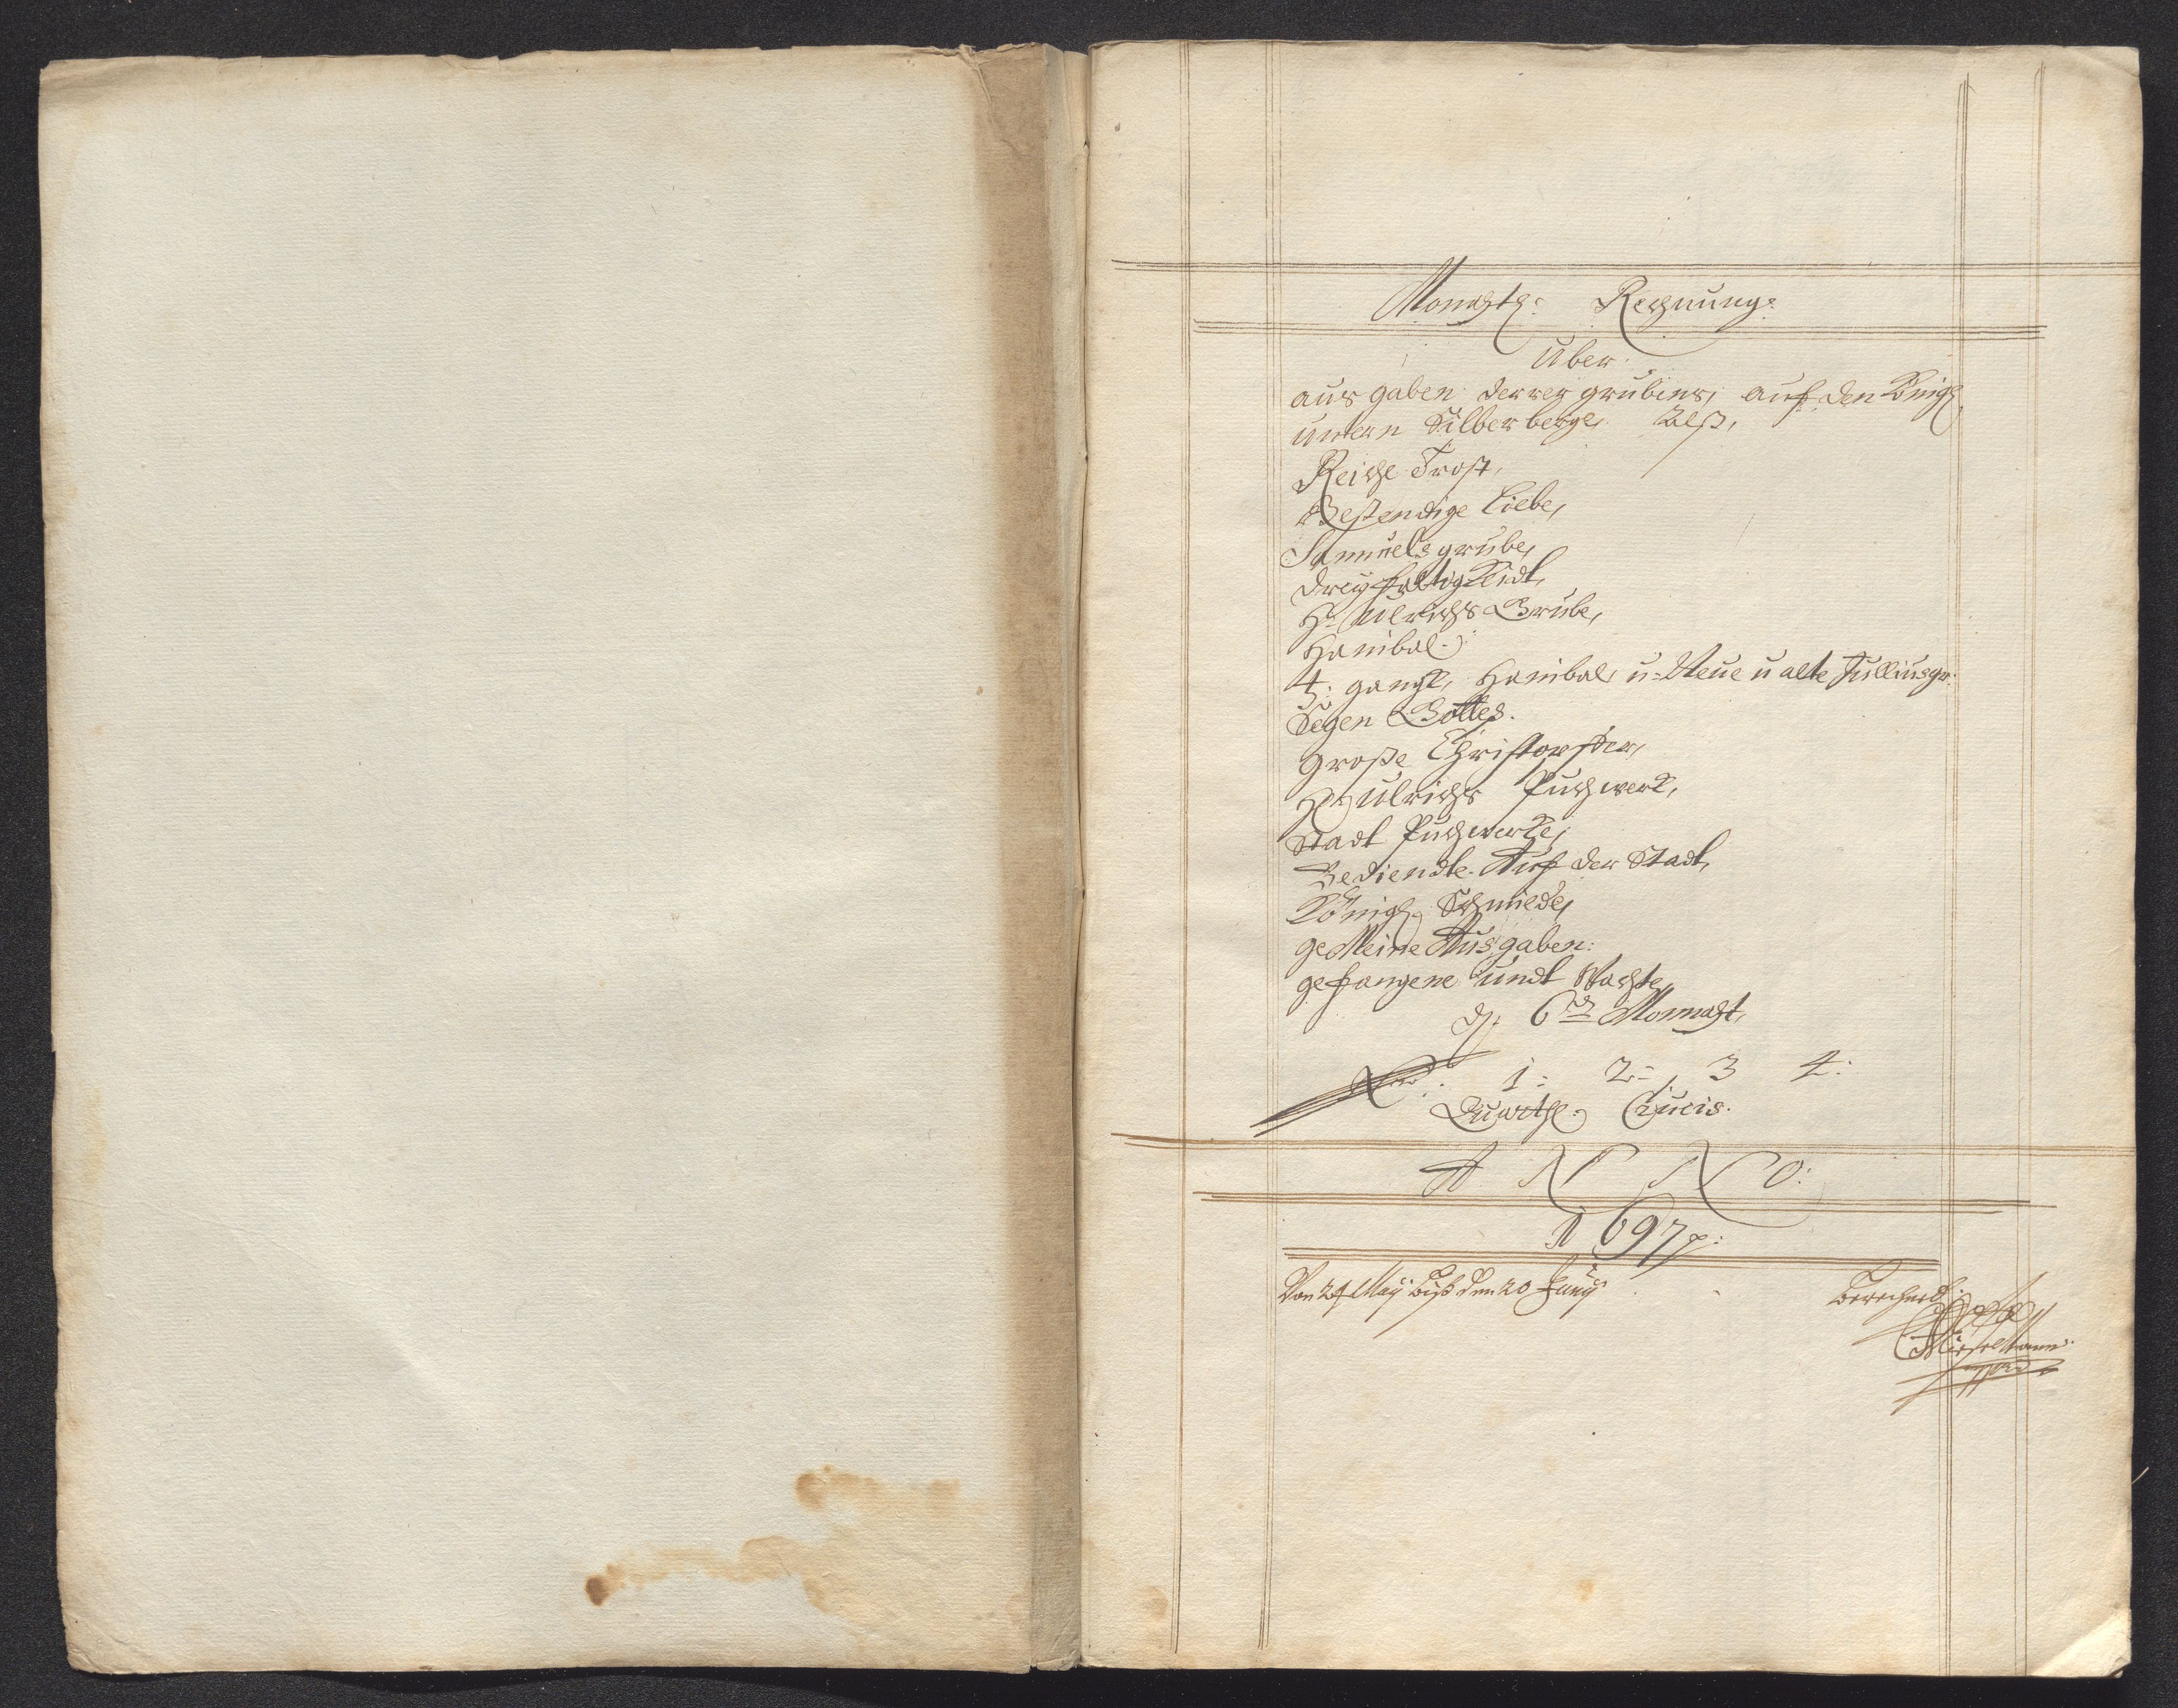 Monahtl: Rechnung:
Über
ausgaben derrer grubens, auf den Königl
untern Silberberge. Alß,
Reiche Trost,
Bestendige Liebe,
Samuels grube,
dreyfaltigkeidt,
H: Ulrichs Grube,
Hanibal.
4: gangk, Hanibal, u: Neue u alte Julliusgr:
Segen Gottes.
große Christopffer,
H: Ulrichs Puchwerk,
Stadt Puchwerke,
Bediendte Auf der Stadt,
Königl Schmiede,
ge Meine Ausgaben:
gefangene undt Wachte,
6 Monnaht,
No: 1: 2: 3 4:
Quartl: Crucis.
ANNO:
1697:
Von 24 Maÿ biß den 20 Junÿ
berechned